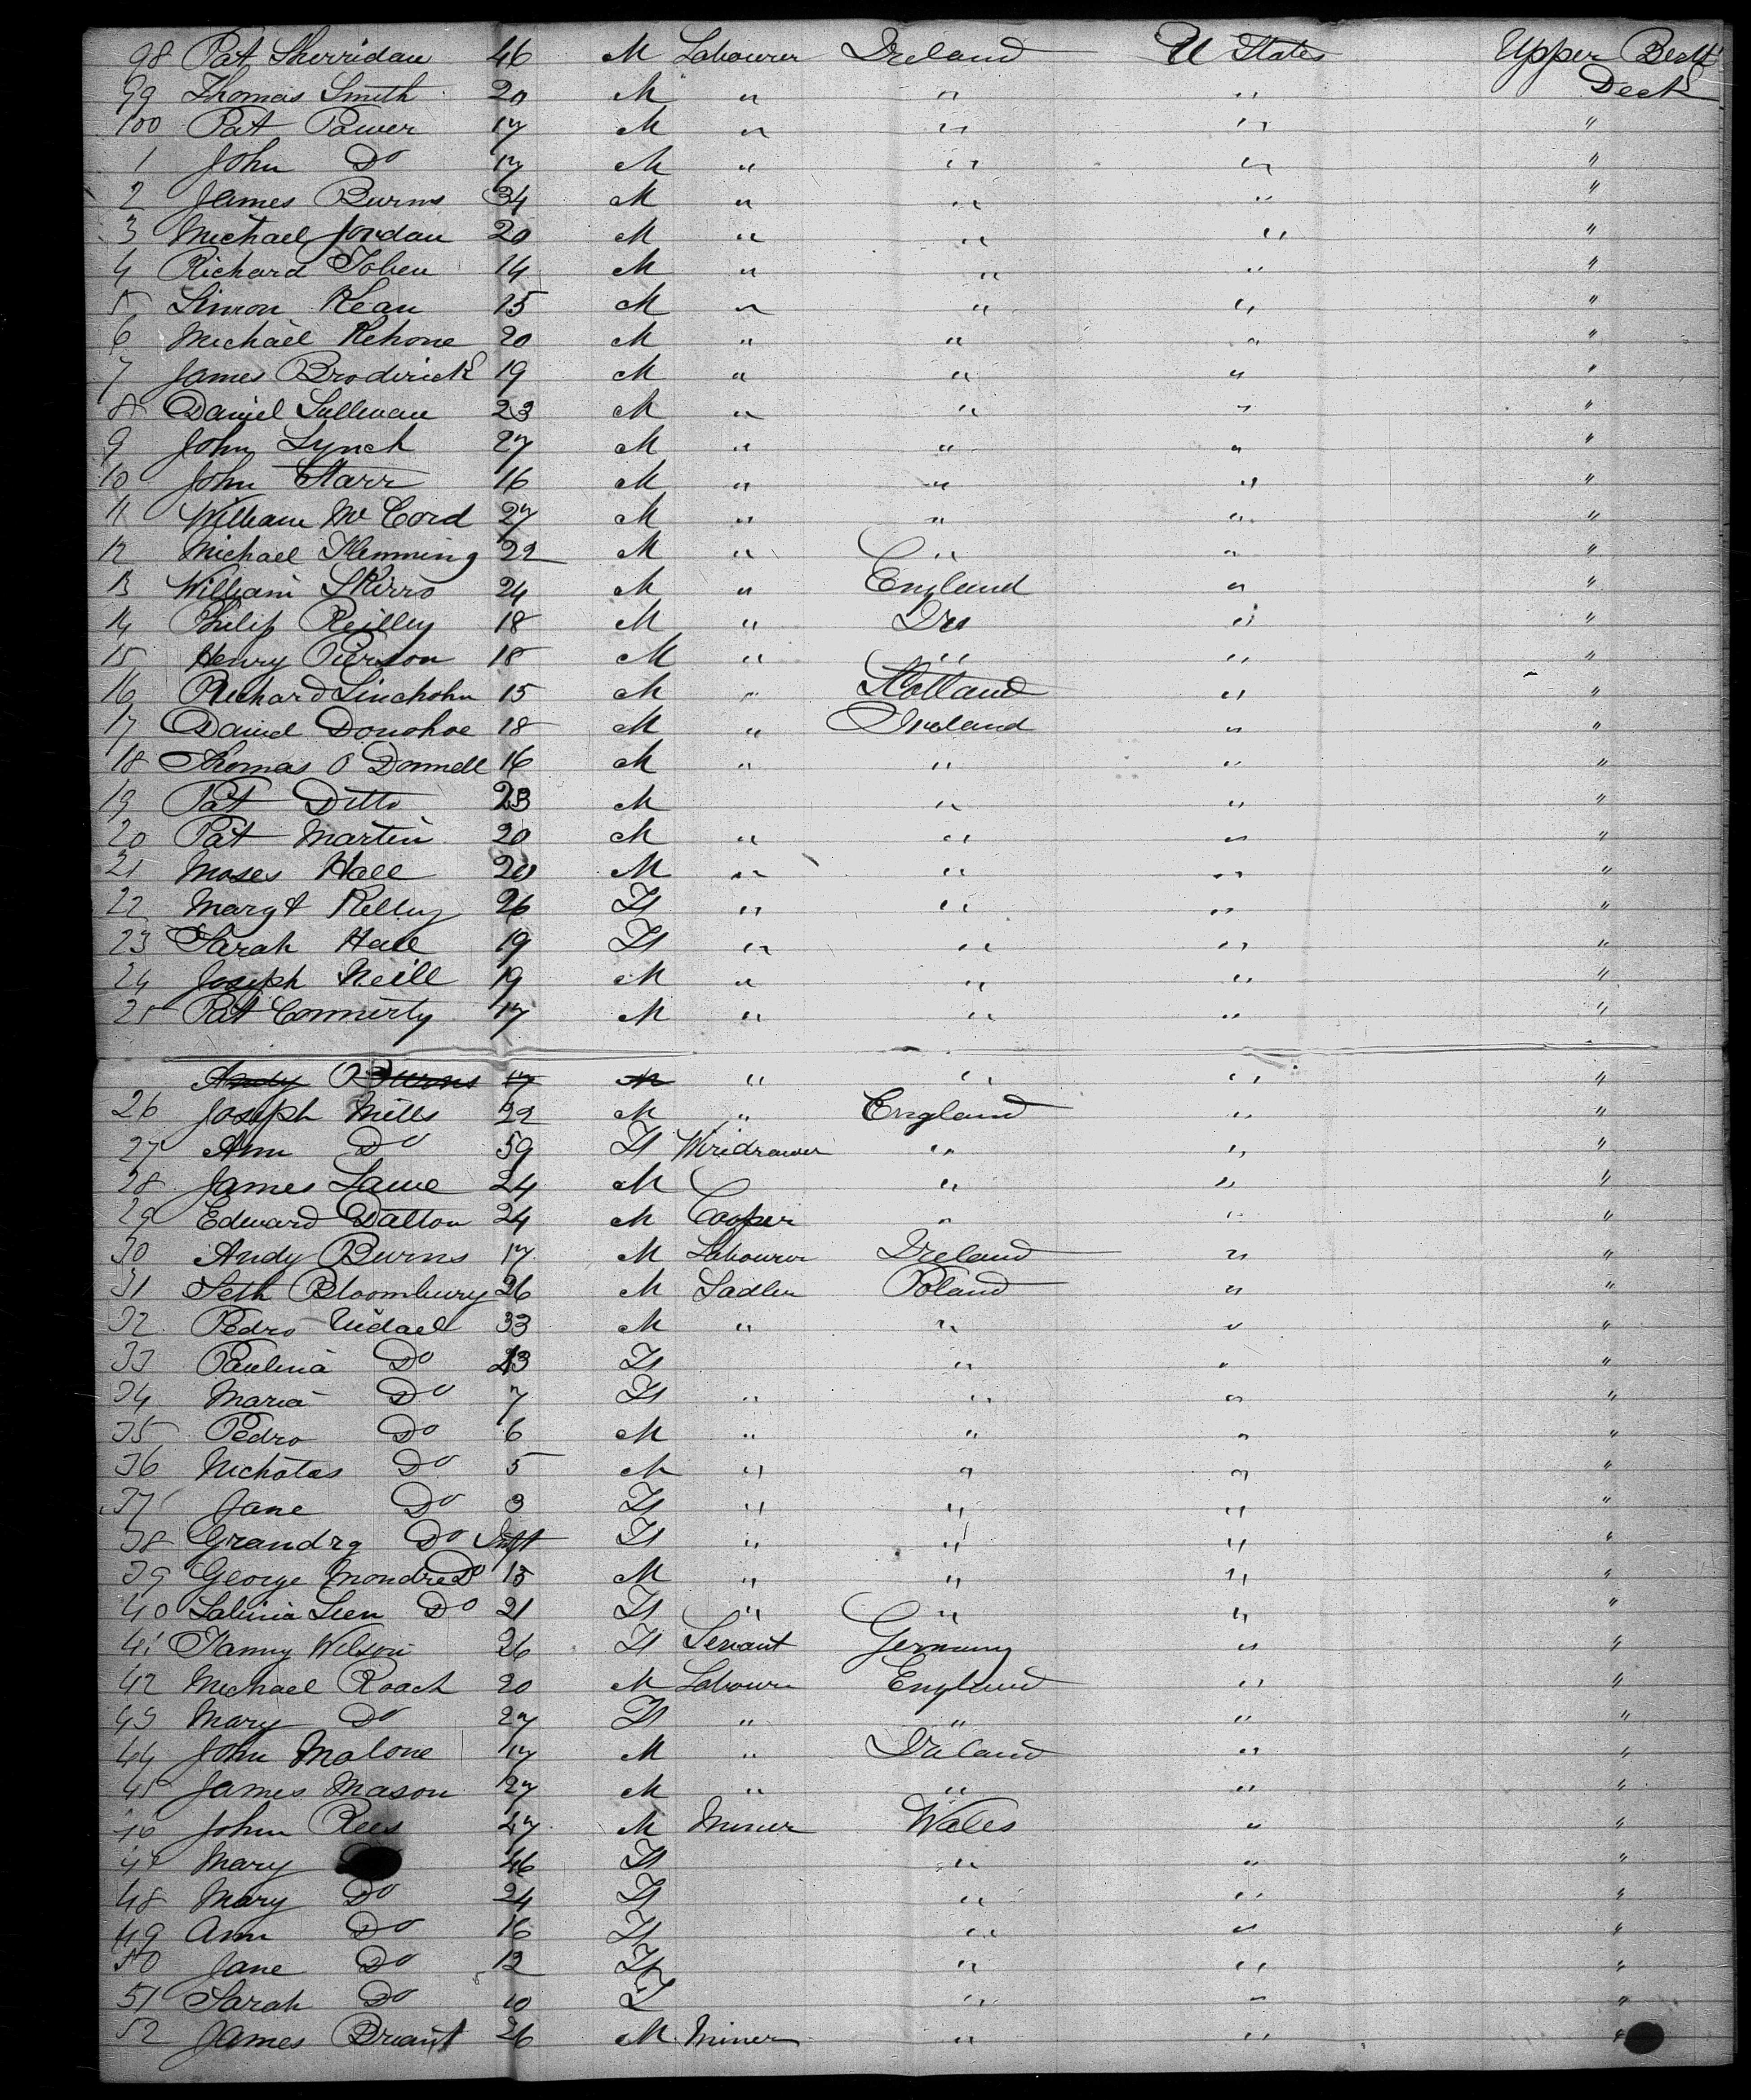 98 Pat Sherridan 46 M Labourer Ireland U States Upper Beth
Deck
99 Thomas Smith 20 M " " "
100 Pat Power 17 M " " " "
1 John Do 17 M " " " "
2 James Burns 34 M " " " "
3 Michael Jordan 20 M " " " "
4 Richard Toben 14 M " " " "
5 Simon Kean 15 M " " " "
6 Michael Kehone 20 M " " " "
7 James Broderick 19 M " " " "
8 Daniel Sullevan 23 M " " " "
9 John Lynch 27 M " " " "
10 John Starr 16 M " " " "
11 William Mc Cord 27 M " " " "
12 Michael Flemming 22 M " " " "
13 William Skirro 24 M " England " "
14 Philip Reilley 18 M " Ire " "
15 Henry Pierson 18 M " " " "
16 Richard Linchohn 15 M " Holland " "
17 Daniel Donohoe 18 M " Ireland " "
18 Thomas O Donnell 16 M " " " "
19 Pat Ditto 23 M " " "
20 Pat Martin 20 M " " " "
21 Moses Hall 20 M " " " "
22 Margt Kelley 26 F " " " "
23 Sarah Hall 19 F " " " "
24 Joseph Neill 19 M " " " "
25 Pat Connerty 17 M " " " "
Andy Burns 17 M " " " "
26 Joseph Mills 22 M " England " "
27 Ann Do 59 F Wiridrawer " " "
28 James Lawe 24 M " " "
29 Edward Dalton 24 M Cooper " " "
30 Andy Burns 17 M Labourer Ireland " "
31 Seth Bloombury 26 M Sadler Poland " "
32 Pedro Vidael 33 M " " " "
33 Paulina Do 23 F " " "
34 Maria Do 7 F " " " "
35 Pedro Do 6 M " " " "
36 Nicholas Do 5 M " " " "
37 Jane Do 3 F " " " "
38 Grandrg Do Inft F " " " "
39 George Mondre Do 15 M " " " "
40 Salinia Leen Do 21 F " " " "
41 Fanny Wilson 26 F Servant Germany " "
42 Michael Roach 20 M Labourer England " "
43 Mary Do 27 F " " " "
44 John Malone 17 M " Ireland " "
45 James Mason 27 M " " " "
46 John Rees 47 M Miner Wales " "
47 Mary 46 F " " "
48 Mary Do 24 F " " "
49 Ann Do 16 F " " "
50 Jane Do 12 F " " "
51 Sarah Do 10 F " " "
52 James Briant 26 M Miner " " "